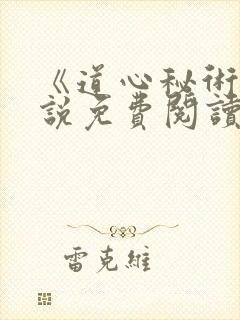 《道心秘術
說免費閱讀
雷克維